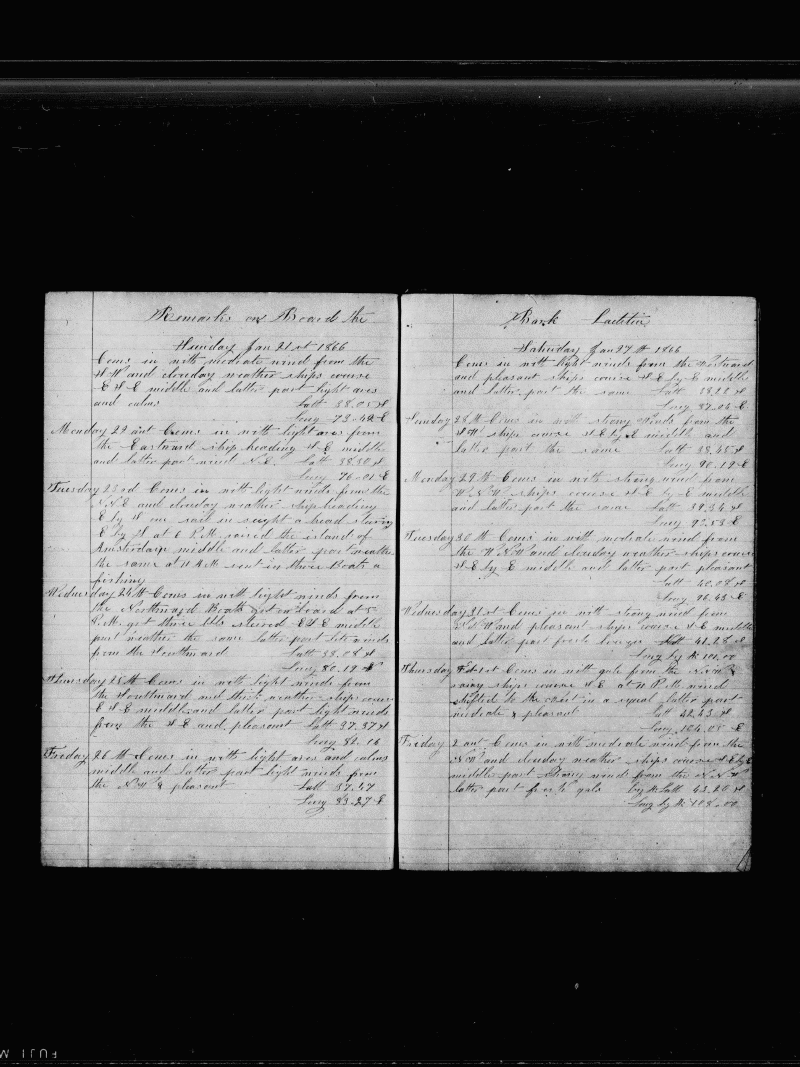 Remarks on Board the
Sunday Jan 21st 1866
Coms in with moderate wind from the
and clouday weather ships course
E middle and latter part light ares
and calms Latt 38.05
Long 73.42 E
Monday 22 ant Coms in with light ares from
the Eastward ship heading middle
and latter part wind N.E. Latt 38.30
Long 76-01 E
Tuesday 23rd Coms in with light winds from the
N.N.E and clouday weather ship heading
E by one sail in sught a head stering
E by at 6 P.M. raised the island of
Amsterdarp middle and latter part weather
the same at 11 A.M. went in three Boats a
fishing
Wednesday 24th Coms in with light winds from
the Northward Boats got on board at 5
P.M. got three bbls steered middle
part weather the same latter part lite winds
from the Southward Latt 38.08
Long 80.19 E
Thursday 25th Coms in with light winds from
the Southward and thick weather ships course
E middle and latter part light winds
from the and pleasent Latt 37.37
Long 82.16
Friday 26th Coms in with light ares and calms
middle and latter part light winds from
the N.W & pleasent Latt 37.47
Long 83.27 E
Bark Laetitia
Saturday Jan 27th 1866
Coms in with light winds from the Westward
and pleasant ships course by E middle
and latter part the same Latt 38.22
Long 87.06 E
Sunday 28th Coms in with strong winds from the
ships course E by middle and
latter part the same Latt 38.45
Long 90.19 E
Monday 29th Coms in with strong wind from
W.N.W. ships course by E middle
and latter part the same Latt 39.34
Long 92.53 E
Tuesday 30th Coms in with moderate wind from
the W.N.W and clouday weather ships course
by E middle and latter part pleasant
Latt 40.08
Long 96.43 E
Wednesday 31st Coms in with strong wind from
and pleasant ships course middle
and latter part fresh Latt 41.28
Long by 101.00
Thursday Feb 1st Coms in with gale from the
rainy ships course at 11 P.M. wind
shifted to the in a squal latter part
modrate & pleasent Latt 42.43
Long 104.05 E
Friday 2 ant Coms in with moderate wind from the
N.W and clouday weather ships course E by E
middle part strong wind from the N.N.W
latter part fresh gale by Latt 43.20
Long by 108.00
FUJI M